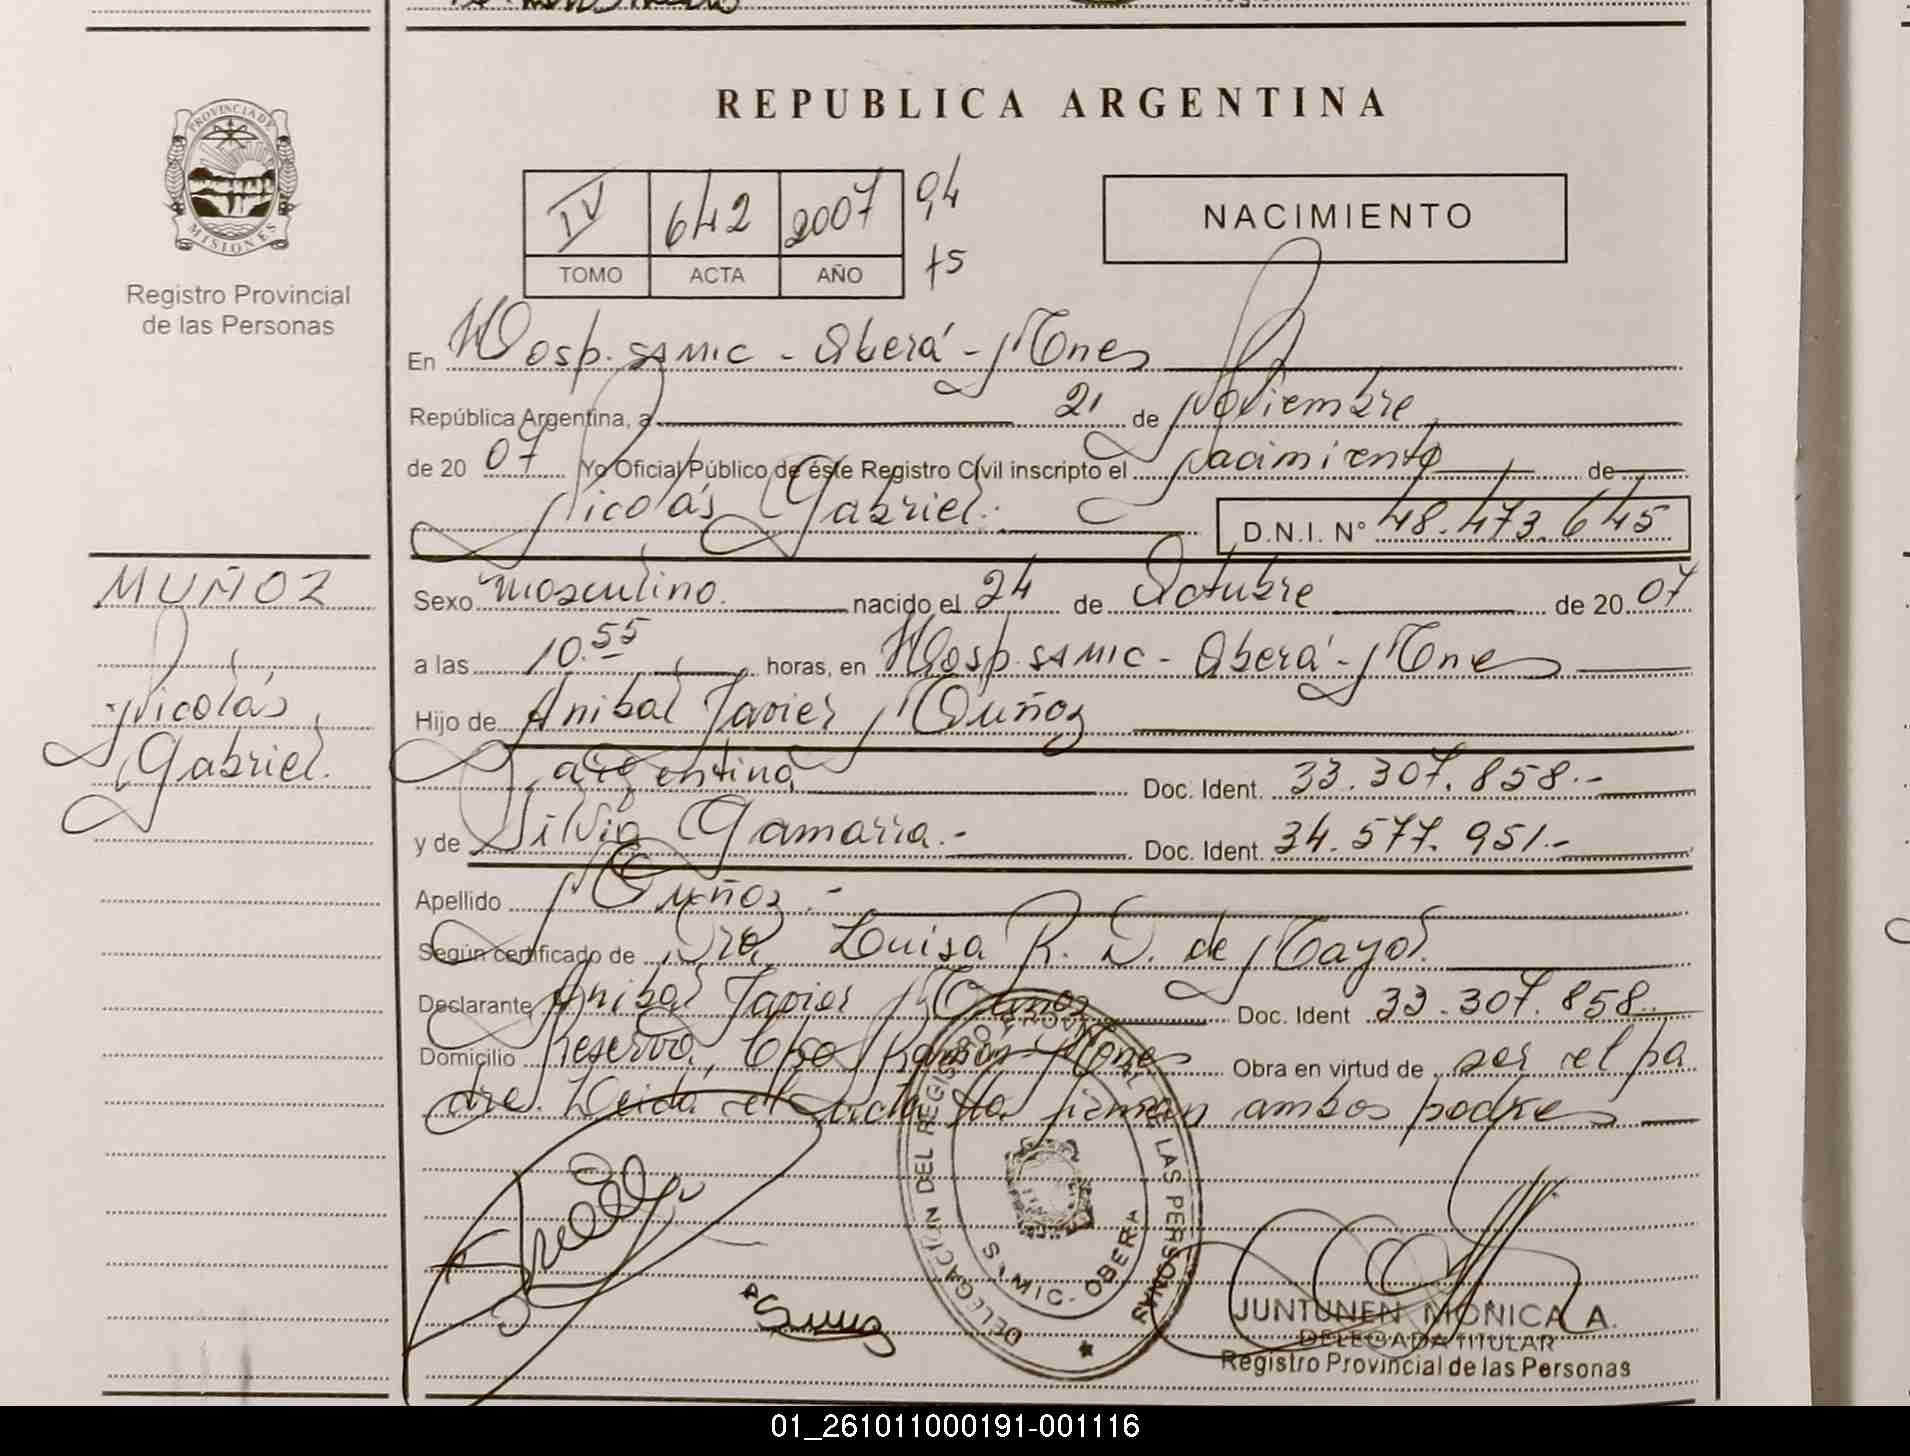 REPUBLICA ARGENTINA
PROVINCIA DE
MISIONES
Registro Provincial
de las Personas
IV 642 2007 94
TOMO ACTA AÑO 75
NACIMIENTO
En Hosp. SAMIC - Oberá - Mnes
República Argentina, a 21 de Noviembre
de 20 07 Yo Oficial Público de éste Registro Civil inscripto el nacimiento de
Nicolás Gabriel. D.N.I. Nº 48.473.645
MUÑOZ
Nicolás
Gabriel.
Sexo masculino. nacido el 24 de Octubre de 20 07
a las 10.55 horas, en Hosp. SAMIC - Oberá - Mnes
Hijo de Anibal Javier Muñoz
argentina Doc. Ident. 33.307.858.-
y de Silvia Gamarra.- Doc. Ident. 34.577.951.-
Apellido Muñoz.-
Según certificado de Dra. Luisa R. D. de Mayol.
Declarante Anibal Javier Muñoz Doc. Ident 33.307.858.
Domicilio Reserva, Cpo Ramón Mnes Obra en virtud de ser el pa
dre. Leida el acta la firman ambos padres
DELEGACIÓN DEL REGISTRO PROVINCIAL DE LAS PERSONAS
SAMIC - OBERA
JUNTUNEN MONICA A.
DELEGADA TITULAR
Registro Provincial de las Personas
01_261011000191-001116